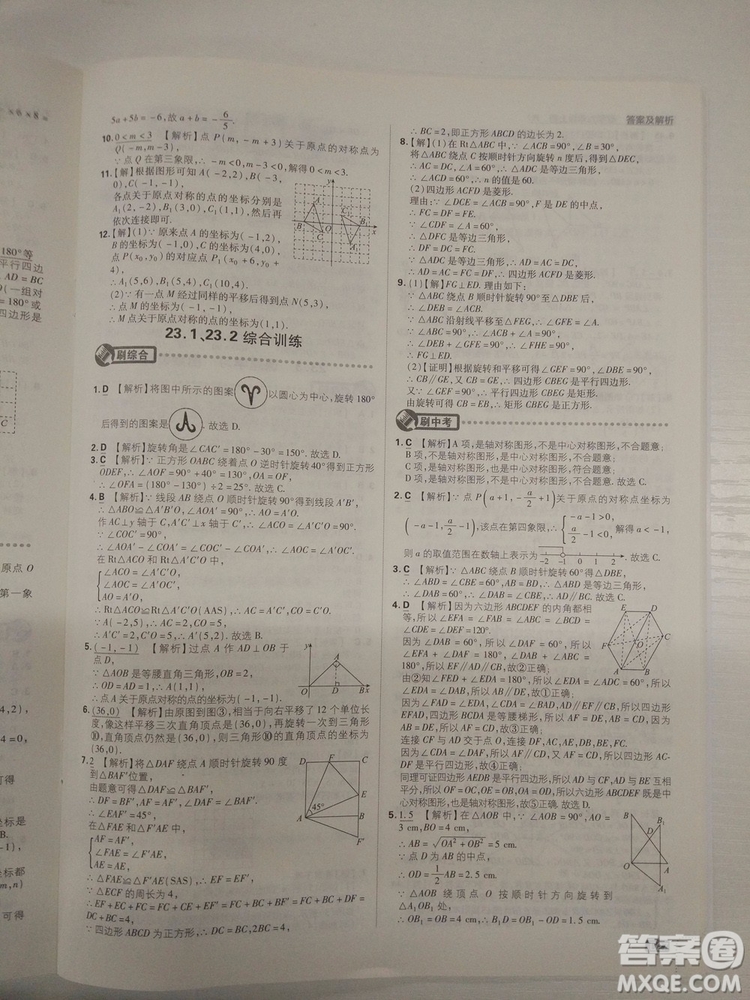 5a+5b=-6,故a+b=-6/5.
10. 0<m<3 【解析】点P(m,-m+3)关于原点的对称点Q(-m,m-3),
∵点Q在第三象限,∴-m<0,m-3<0,解得0<m<3.
11.【解】根据图形可知A(-2,2),B(-3,0),C(-1,-1),
各点关于原点对称的点的坐标为
A₁(2,-2),B₁(3,0),C₁(1,1),然后
依次连接即可.
12.【解】(1)∵原来点A的坐标为(-1,2),
点P的对应点P₁(x₀+6,y₀+
4),
∴A₁(5,6),B₁(5,4),C₁(10,4).
(2)∵有一点M经过同样的平移后得到点N(5,3),
∴点M关于原点对称的点的坐标为(1,1).
23.1、23.2综合训练
刷综合
1. D 【解析】将图中所示的图案 以圆心为中心,旋转180°
后得到的图案是 ,故选D.
2. D 【解析】旋转角是∠CAC′=180°-30°=150°.故选D.
3. C 【解析】∵正方形OABC绕着点O逆时针旋转40°得到正方形
ODEF,∴∠AOF=90°+40°=130°,OA=OF,
∴∠OFA=(180°-130°)÷2=25°.故选C.
4. B 【解析】∵线段AB绕点O顺时针旋转90°得到线段A′B′,
∴△ABO≌△A′B′O,∠AOA′=90°,∴AO=A′O.
作AC⊥y轴于C,A′C′⊥x轴于C′,∴∠ACO=∠A′C′O=90°.
∵∠COC′=90°,
∴∠AOA′-∠COA′=∠COC′-∠COA′,∴∠AOC=∠A′OC′.
在Rt△ACO和Rt△A′C′O中,
∠ACO=∠A′C′O,
∠AOC=∠A′OC′,
AO=A′O,
∴Rt△ACO≌Rt△A′C′O(AAS),∴AC=A′C′,CO=C′O.
∵A(-2,5),∴AC=2,CO=5,
∴A′C′=2,OC′=5,∴A′(5,2).故选B.
5. (-1,-1) 【解析】过点A作AD⊥OB于
点D,
∵△AOB是等腰直角三角形,OB=2,
∴OD=AD=1,∴A(1,1),
∴点A关于原点对称的点的坐标为(-1,-1).
6. (36,0) 【解析】由原图到图③,相当于向右平移了12个单位长
度,像这样平移三次直角顶点是(36,0),再旋转一次到三角形
⑩,直角顶点仍然是(36,0),则三角形⑩的直角顶点的坐标为
(36,0).
7. 2 【解析】将△DAF绕点A顺时针旋转90度
到△BAF′位置,
由题意可得出△DAF≌△BAF′,
∴DF=BF′,AF=AF′,∠DAF=∠BAF′,
∴∠EAF′=45°,
在△FAE和△F′AE中,
AF=AF′,
∠FAE=∠F′AE,
AE=AE,
∴△FAE≌△F′AE(SAS),∴EF=EF′.
∵△ECF的周长为4,
∴EF+EC+FC=FC+CE+EF′=FC+BC+BF′=DF+
FC+BC=4,∴2BC=4,
∵四边形ABCD为正方形,∴BC=DC,
答案及解析
∴BC=2,即正方形ABCD的边长为2.
8.【解】(1)在Rt△ABC中,∵∠ACB=90°,∠B=30°,
将△ABC绕点C按顺时针方向旋转n度后,得到△DEC,
∴AC=DC,∠A=60°,
∴△ADC是等边三角形,
∴∠ACD=60°,∴n的值是60.
(2)四边形ACFD是菱形.
理由:∵∠DCE=∠ACB=90°,F是DE的中点,
∴FC=DF=FE.
∵∠CDF=∠A=60°,
∴△DFC是等边三角形,
∴DF=DC=FC.
∵△ADC是等边三角形,∴AD=AC=DC,
∴AD=AC=FC=DF,
∴四边形ACFD是菱形.
9.(1)【解】FG⊥ED.理由如下:
∵△ABC绕点B顺时针旋转90°至△DBE后,
∴∠DEB=∠ACB.
∵△ABC沿射线平移至△FEG,∴∠GFE=∠A.
∵∠ABC=90°,∴∠A+∠ACB=90°,
∴∠DEB+∠GFE=90°,
∴FG⊥ED.
(2)【证明】根据旋转和平移可得∠GEF=90°,∠CBE=90°,
CG∥EB,CB=BE.
∵CG∥EB,∴∠BCG=∠CBE=90°,
∴∠BCG=90°,∴四边形BCGE是矩形.
由旋转可得CB=EB,∴矩形CBEG是正方形.
刷中考
1. C 【解析】A项,是轴对称图形,不是中心对称图形,不合题意;
B项,不是轴对称图形,是中心对称图形,不合题意;
C项,是轴对称图形,也是中心对称图形,符合题意;
D项,是轴对称图形,不是中心对称图形,不合题意.故选C.
2. C 【解析】∵点P(a+1,-a/2+1)关于原点的对称点坐标为
(-a-1,a/2-1),该点在第四象限,∴{-a-1>0,a/2-1<0,
则a的取值范围在数轴上表示为 -2 -1 0 .故选C.
3. C 【解析】∵△ABC绕点B顺时针旋转60°得△DBE,
∴∠ABD=∠CBE=60°,AB=BD,∴△ABD是等边三角形,
∴∠DAB=60°,∴∠DAB=∠CBE,∴AD∥BC.故选C.
4. D 【解析】∵六边形ABCDEF的内角都相
等,∴∠EFA=∠FED=∠FAB=∠ABC=
∠DEF=120°.
∵∠DAB=60°,∴∠DAF=60°,
∴∠EFA+∠DAF=180°,∠DAB+
∠ABC=180°,∴AD∥EF∥CB,故②正确;
由②可知∠FED+∠EDA=180°,
∴∠EDA=60°,∴∠EDA=∠DAB,
∴AB∥DE,故①正确;
∵∠FAD=∠EDA,∠CDA=∠BAD,AD∥EF∥CB,所以四边形
EFAD,四边形BCDA是等腰梯形,所以AF=DE,AB=CD,因为
AB=DE,所以AF=CD,故③正确;
连接CF与AD交于点O,连接DF,AC,AE,DB,BE.
因为∠CDA=∠DAF,所以AF∥CD,又因为AF=CD,所以四边形
AFDC是平行四边形,故④正确;
同理可证四边形AEDB是平行四边形,所以AD与CF,AD与BE互相
平分,所以OF=OC,OE=OB,OA=OD,所以六边形ABCDEF是中
心对称图形,也是轴对称图形,故⑤正确.故选D.
5. 1.5 【解析】∵在△AOB中,∠AOB=90°,AO=
3 cm,BO=4 cm,
∴AB=√(OA²+OB²)=5 cm.
∵点D为AB的中点,
∴OD=1/2AB=2.5 cm.
∵△AOB绕顶点O按顺时针方向旋转到
△A₁OB₁处,
∴OB₁=OB=4 cm,∴B₁D=OB₁-OD=1.5 cm.
答案圈
MXQE.COM